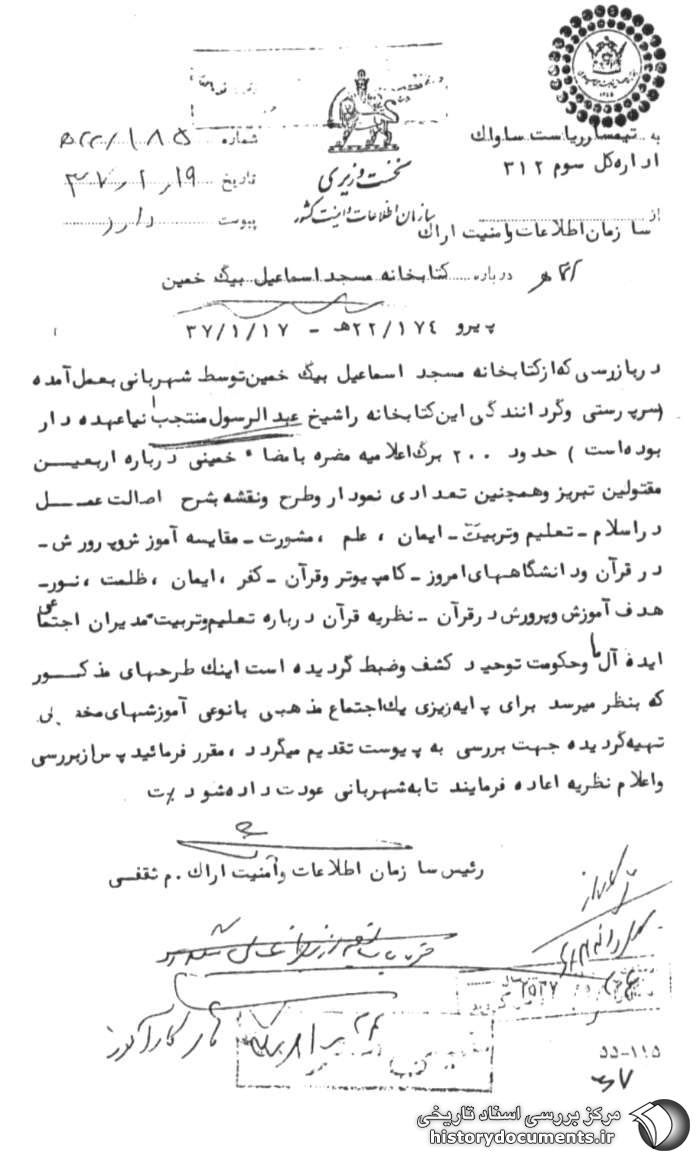 به تیمسار ریاست ساواک
اداره کل سوم ۳۱۲
از
سازمان اطلاعات وامنیت اراک
نخست وزیری
سازمان اطلاعات و امنیت کشور
شماره ۱۸۵/۲۲ه
تاریخ ۱۹/۱/۳۷
پیوست دارد
درباره کتابخانه مسجد اسماعیل بیگ خمین
پیرو ۲۲/۱۷٤ه - ۳۷/۱/۱۷
دربازرسی که از کتابخانه مسجد اسماعیل بیگ خمین توسط شهربانی بعمل آمده
(سرپرستی وگردانندگی این کتابخانه راشیخ عبدالرسول منتجب نیا عهده دار
بوده است) حدود ۲۰۰ برگ اعلامیه مضره بامضاء خمینی درباره اربعین
مقتولین تبریز وهمچنین تعدادی نمودار وطرح ونقشه بشرح اصالت عمل
دراسلام ـ تعلیم وتربیت ـ ایمان ، علم ، مشورت ـ مقایسه آموزش وپرورش ـ
در قرآن ودانشگاههای امروز ـ کامپیوتر وقرآن ـ کفر ، ایمان ، ظلمت ، نور ـ
هدف آموزش وپرورش درقرآن ـ نظریه قرآن درباره تعلیم وتربیت مدیران اجتماعی
ایده آل ما وحکومت توحید کشف وضبط گردیده است اینک طرحهای مذکور
که بنظر میرسد برای پایه ریزی یک اجتماع مذهبی بانوعی آموزشهای
تهیه گردیده جهت بررسی به پیوست تقدیم میگردد ، مقرر فرمائید پس ازبررسی
واعلام نظریه اعاده فرمایند تابه شهربانی عودت داده شود
رئیس سازمان اطلاعات وامنیت اراک . م ثقفی
۲۵۳۷
۵۵-۱۱۵
مرکز بررسی اسناد تاریخی
historydocuments.ir